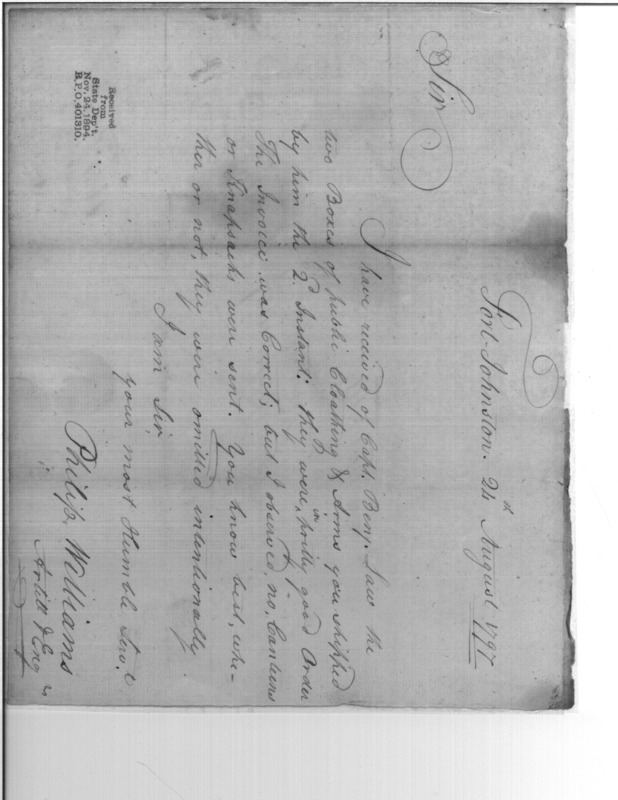 Fort Johnston. 24th August 1797
Sir
I have received of Capt. Benj. Law the
two Boxes of public Cloathing & Arms you shipped
by him the 2d Instant: They were, in pretty good Order
The Invoice was Correct; but I observed, no, Canteens
or Knapsacks were sent. You know best, whe-
ther or not, they were omitted intentionally
I am Sir,
your most Humble Serv.t
Philip Williams
Artill & Eng rs
Received
from
State Dep't.
Nov. 24, 1894.
R.P.O. 401310.